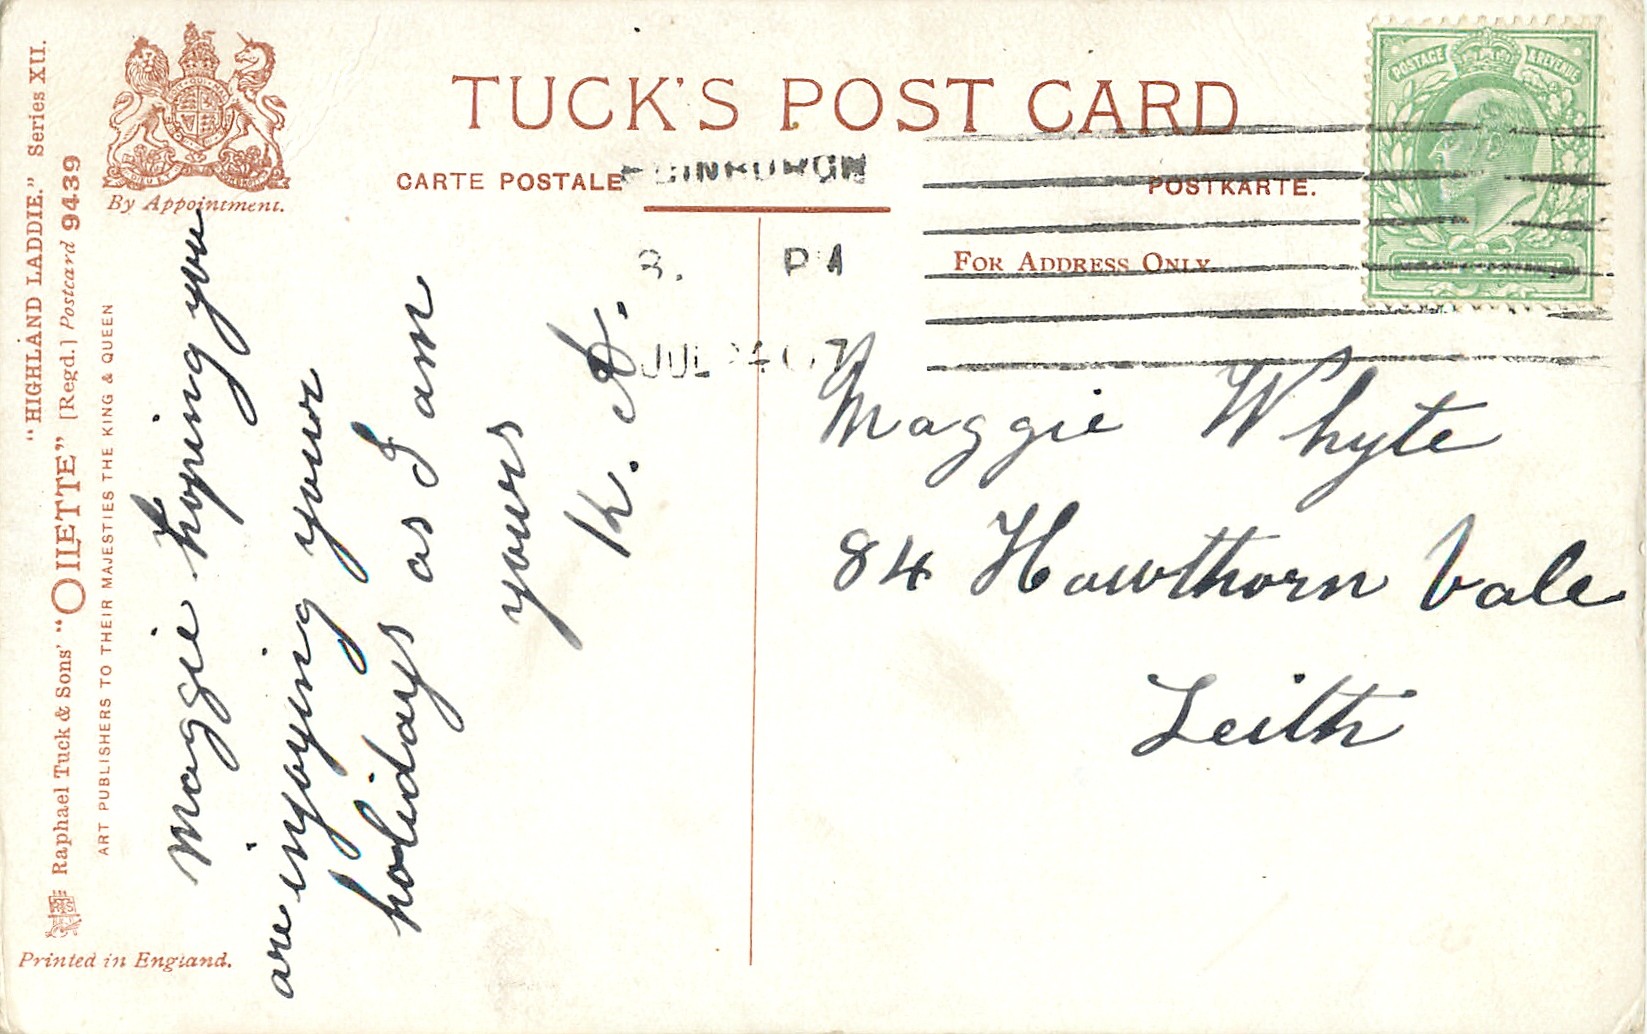 TUCK'S POST CARD
CARTE POSTALE
POSTKARTE.
FOR ADDRESS ONLY.
By Appointment.
"HIGHLAND LADDIE." Series XII.
Raphael Tuck & Sons' "OILETTE" [Regd.] Postcard 9439
ART PUBLISHERS TO THEIR MAJESTIES THE KING & QUEEN
Printed in England.
POSTAGE & REVENUE
EDINBURGH
PM
JUL 24 07
Maggie hoping you
are injoying your
holidays as I am
yours
Maggie Whyte
84 Hawthorn Vale
Leith